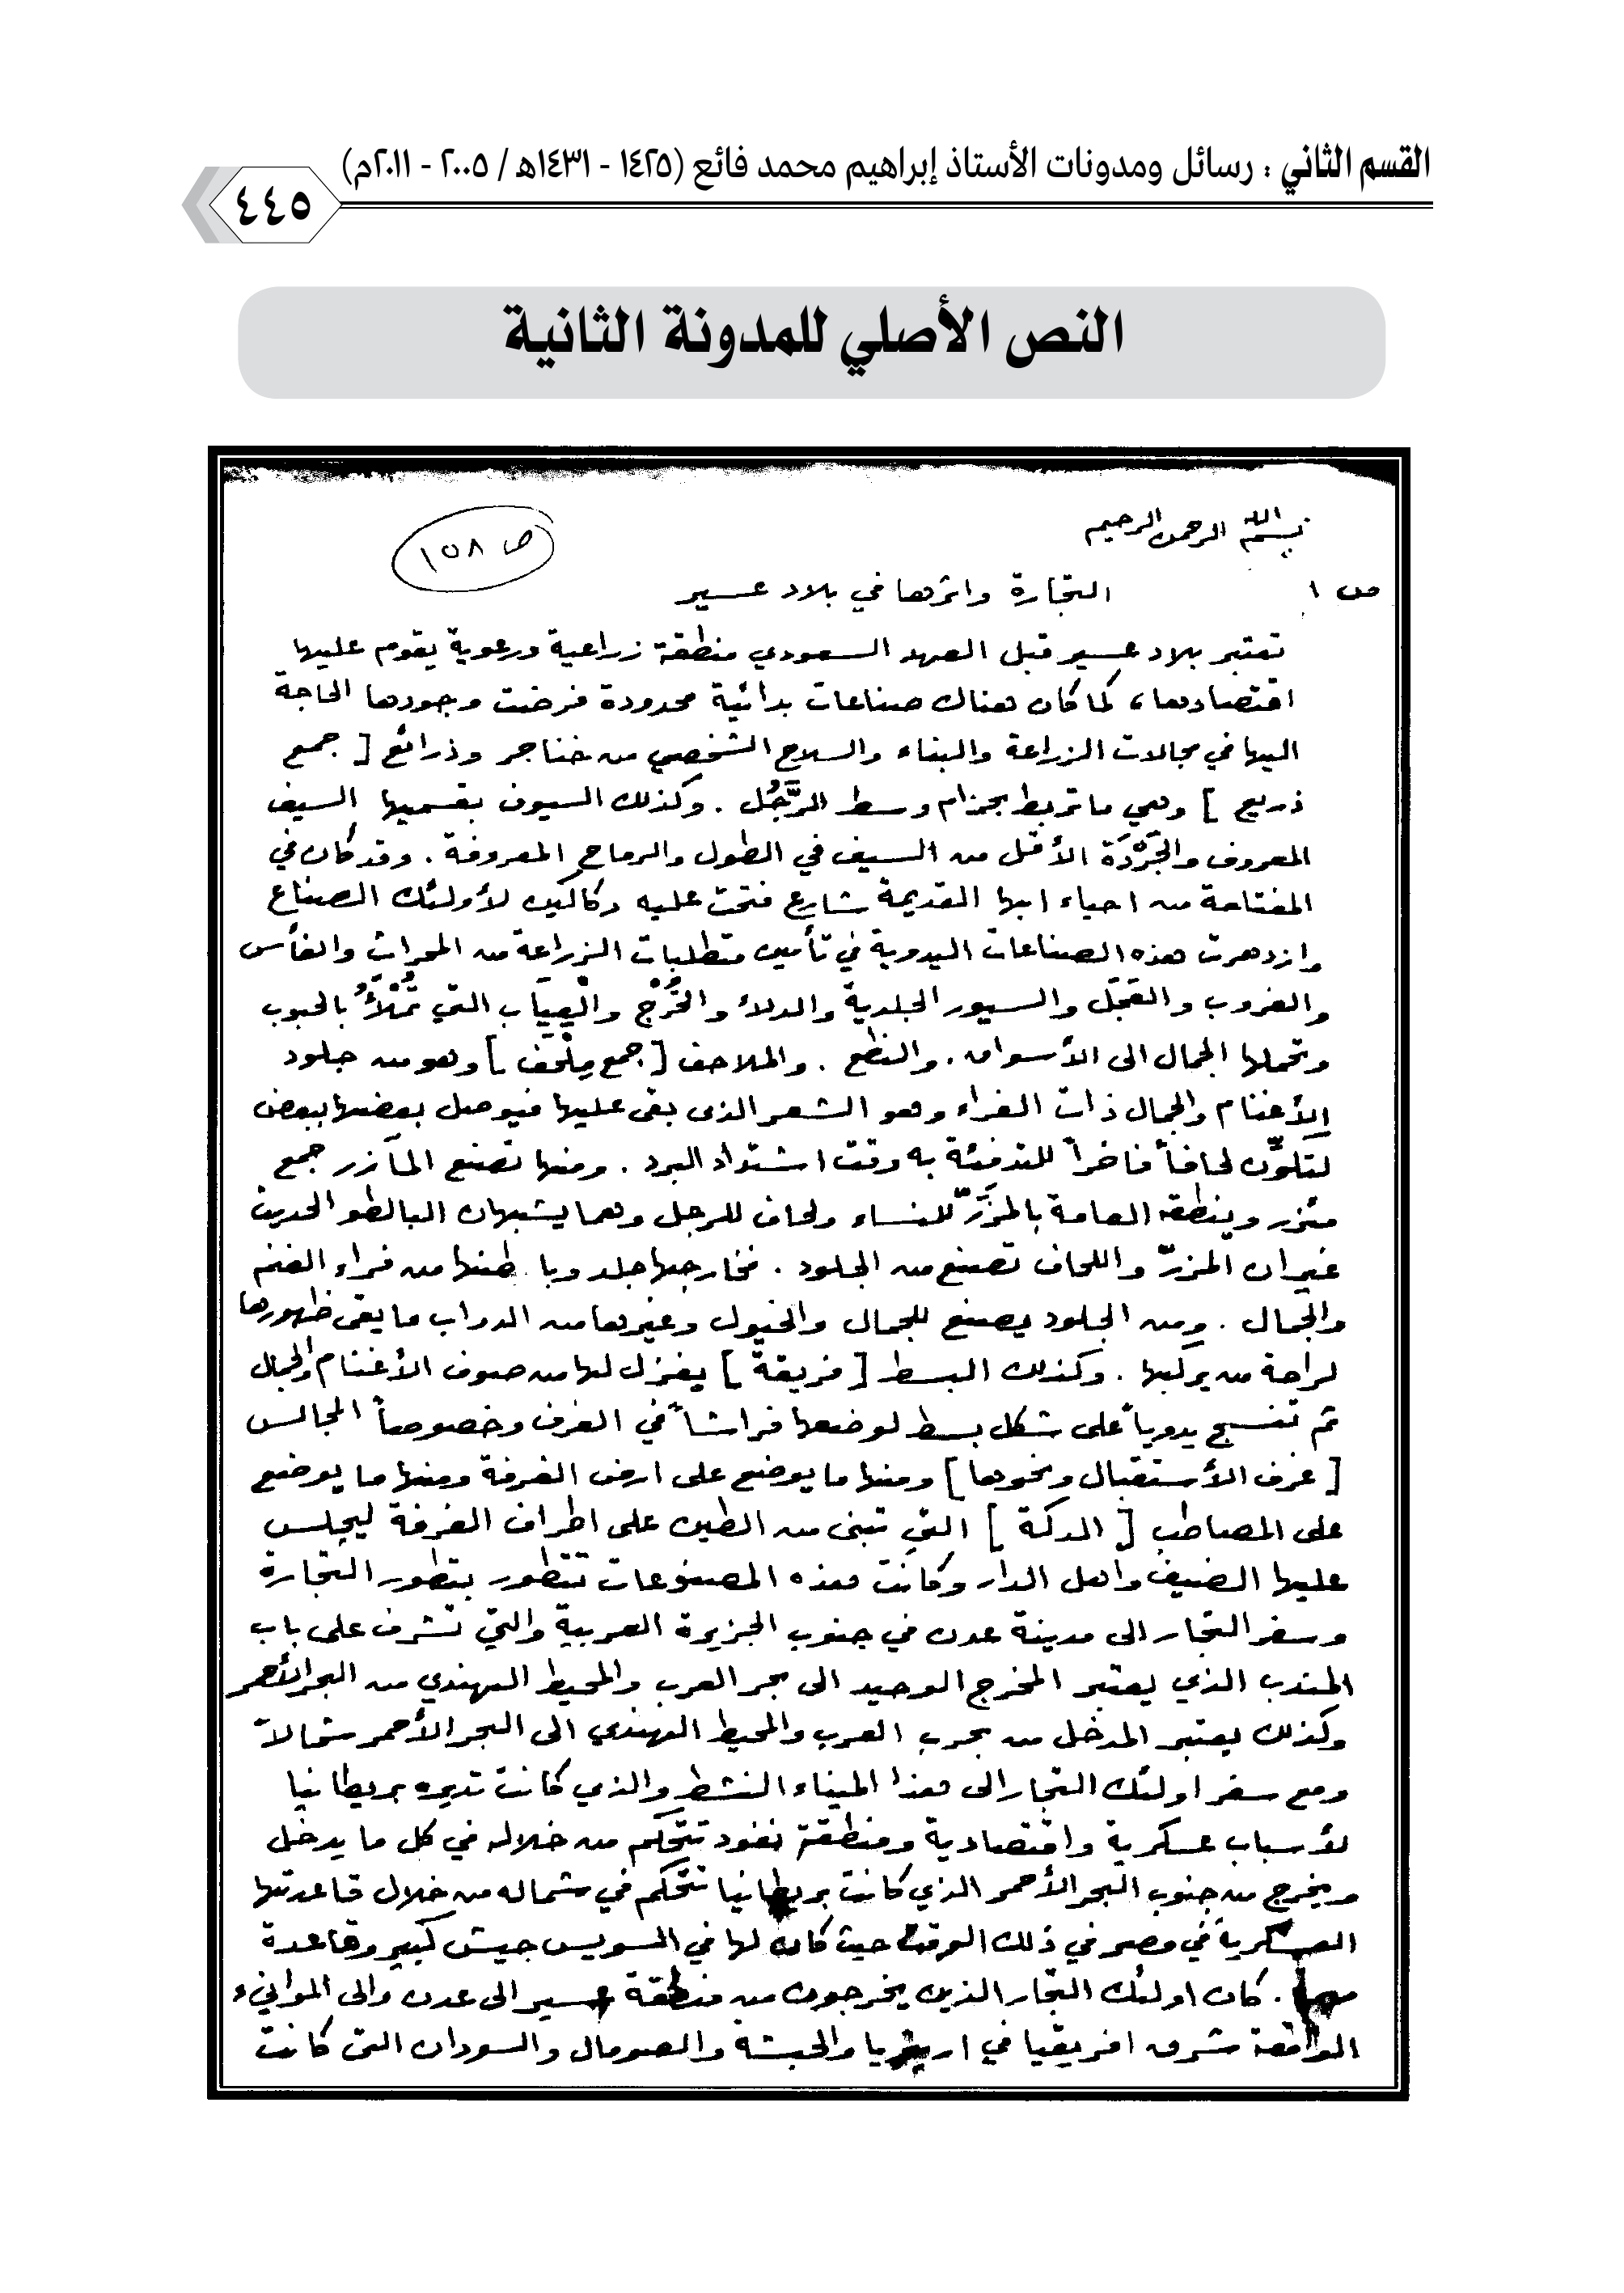 القسم الثاني : رسائل ومدونات الأستاذ إبراهيم محمد فائع (١٤٢٥ - ١٤٣١هـ / ٢٠٠٥ - ٢٠١١م)
٤٤٥
النص الأصلي للمدونة الثانية
بسم الله الرحمن الرحيم
ص ١٥٨
ص ١
التجارة واثرها في بلاد عسير
تعتبر بلاد عسير قبل العهد السعودي منطقة زراعية ورعوية يقوم عليها
اقتصادها، كما كان هناك صناعات بدائية محدودة فرضت وجودها الحاجة
اليها في مجالات الزراعة والبناء والسلاح الشخصي من خناجر وذرائع [ جمع
ذريع ] وهي ما تربط بحزام وسط الرَّجُل . وكذلك السيوف بقسميها السيف
المعروف والجَرْدَة الأقل من السيف في الطول والرماح المعروفة . وقد كان في
المفتاحة من احياء ابها القديمة شارع فتحت عليه دكاكين لأولئك الصناع
وازدهرت هذه الصناعات اليدوية في تأمين متطلبات الزراعة من المحراث والفأس
والغروب والعَجَل والسيور الجلدية والدلاء والخُرْج والْعِيَاب التي تُمْلَأُ بالحبوب
وتحملها الجمال الى الأسواق . والنطع . والملاحف [ جمع مِلْحف ] وهو من جلود
الأغنام والجمال ذات الفراء وهو الشعر الذى بقى عليها فيوصل بعضها ببعض
لتكوِّن لحافاً فاخراً للتدفئة به وقت اشتداد البرد . ومنها تصنع المآزر جمع
مئزر وينطقه العامة بالمزَرّ للنساء ولحاف للرجل وهما يشبهان البالطو الحديث
غير ان المزرّ واللحاف تصنع من الجلود . فخارجها جلد وباطنها من فراء الغنم
والجمال . ومن الجلود يصنع للجمال والخيول وغيرها من الدواب ما يقى ظهورها
لراحة من يركبها . وكذلك البسط [ فريقة ] يغزل لها من صوف الأغنام والجمال
ثم تنسج يدوياً على شكل بسط لوضعها فراشاً في الغرف وخصوصاً المجالس
[ غرف الأستقبال ونحوها ] ومنها ما يوضع على ارض الغرفة ومنها ما يوضع
على المصاطب [ الدكة ] التي تبنى من الطين على اطراف الغرفة ليجلس
عليها الضيف واهل الدار وكانت هذه المصنوعات تتطور بتطور التجارة
وسفر التجار الى مدينة عدن في جنوب الجزيرة العربية والتي تشرف على باب
المندب الذي يعتبر المخرج الوحيد الى بحر العرب والمحيط الهندي من البحر الأحمر
وكذلك يعتبر المدخل من بحرب العرب والمحيط الهندي الى البحر الأحمر شمالاً
ومع سفر اولئك التجار الى هذا الميناء النشط والذي كانت تديره بريطانيا
لأسباب عسكرية واقتصادية ومنطقة نفود تتحكم من خلاله في كل ما يدخل
ويخرج من جنوب البحر الأحمر الذي كانت بريطانيا تتحكم في شماله من خلال قاعدتها
العسكرية في مصر في ذلك الوقت حيث كان لها في السويس جيش كبير وقاعدة
مهمة . كان اولئك التجار الذين يخرجون من منطقة عسير الى عدن والى الموانيء
الواقعة شرق افريقيا في اريتريا والحبشة والصومال والسودان التى كانت